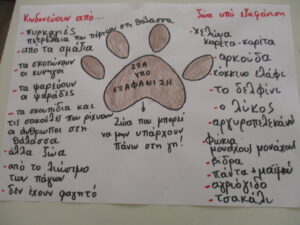 Κινδυνεύουν από...
- πυρκαγιές
πετρέλαια που πέφτουν στη θάλασσα
- από τα αμάξια
- τα σκοτώνουν
οι κυνηγοί
- τα ψαρεύουν
οι ψαράδες
- τα σκουπίδια και
τις σακούλες που ρίχνουν
οι άνθρωποι στη
θάλασσα
- άλλα ζώα
- από το λιώσιμο
των πάγων
- δεν έχουν φαγητό
ΖΩΑ
ΥΠΟ
ΕΞΑΦΑΝΙΣΗ
Ζώα που μπορεί
να μην υπάρχουν
πάνω στη γη!
Ζώα υπό εξαφάνιση
- χελώνα
καρέτα-καρέτα
- αρκούδα
- κόκκινο ελάφι
- το δελφίνι
- ο λύκος
- αργυροπελεκάνος
- φώκια
μονάχους μονάχους
- βίδρα
- πάντα + μαϊμού
- αγριόγιδο
- τσακάλι